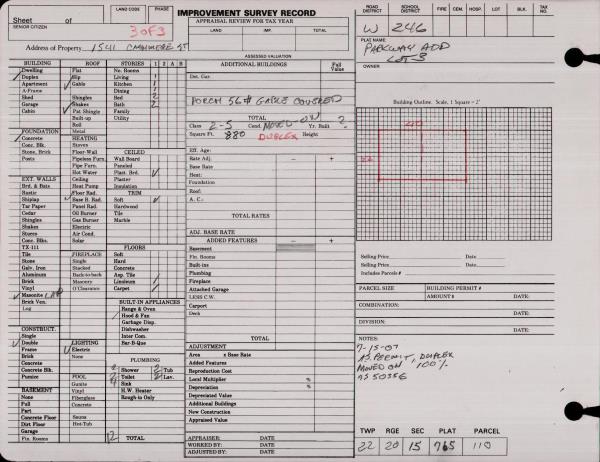 IMPROVEMENT SURVEY RECORD
Sheet of
SENIOR CITIZEN
LAND CODE
PHASE
3 OF 3
Address of Property 1541 COMMERCE ST
APPRAISAL REVIEW FOR TAX YEAR
LAND IMP. TOTAL
ASSESSED VALUATION
ROAD DISTRICT
SCHOOL DISTRICT
FIRE CEM. HOSP. LOT BLK. TAX NO.
W 246
PLAT NAME
PARKWAY ADD
LOT 3
OWNER
BUILDING
Dwelling
Duplex
Apartment
A-Frame
Shed
Garage
Cabin
FOUNDATION
Concrete
Conc. Blk.
Stone, Brick
Posts
EXT. WALLS
Brd. & Bats
Rustic
Shiplap
Tar Paper
Cedar
Shingles
Shakes
Stucco
Conc. Blks.
TX-111
Tile
Stone
Galv. Iron
Aluminum
Brick
Vinyl
Masonite
Brick Ven.
Log
CONSTRUCT.
Single
Double
Frame
Brick
Concrete
Concrete Blk.
Pumice
BASEMENT
None
Full
Part
Concrete Floor
Dirt Floor
Garage
Fin. Rooms
ROOF
Flat
Hip
Gable
Shingles
Shakes
Pat Shingle
Built-up
Roll
Metal
HEATING
Stoves
Floor-Wall
Pipeless Furn.
Pipe Furn.
Hot Water
Ceiling
Heat Pump
Floor Rad.
Base B. Rad.
Panel Rad.
Oil Burner
Gas Burner
Electric
Air Cond.
Solar
FIREPLACE
Single
Stacked
Back-to-back
Masonry
O'Clearance
LIGHTING
Electric
None
POOL
Gunite
Vinyl
Fiberglass
Concrete
Sauna
Hot-Tub
STORIES 1 2 A B
No. Rooms
Living 1
Kitchen 1
Dining 1
Bed 2
Bath 2
Utility
CEILED
Wall Board
Paneled
Plast. Brd.
Plaster
Insulation
TRIM
Soft
Hardwood
Tile
Marble
FLOORS
Soft
Hard
Concrete
Asp. Tile
Linoleum
Carpet
BUILT-IN APPLIANCES
Range & Oven
Hood & Fan
Garbage Disp.
Dishwasher
Inter Com.
Bar-B-Que
PLUMBING
2 Shower 2 Tub
2 Toilet 2 Lav.
Sink
H.W. Heater
Rough-in Only
12 TOTAL
ADDITIONAL BUILDINGS Full Value
Det. Gar.
PORCH 56# GABLE COVERED
TOTAL
Class 2-5 Cond. MOVED-ON Yr. Built ?
Square Ft. 880 DUPLEX Height
Eff. Age:
Rate Adj. - +
Base Rate
Heat:
Foundation
Roof:
A. C.:
TOTAL RATES
ADJ. BASE RATE
ADDED FEATURES - +
Basement
Fin. Rooms
Built-ins
Plumbing
Fireplace
Attached Garage
LESS C.W.
Carport
Deck
TOTAL
ADJUSTMENT
Area x Base Rate
Added Features
Reproduction Cost
Local Multiplier %
Depreciation %
Depreciated Value
Additional Buildings
New Construction
Appraised Value
APPRAISER: DATE
WORKED BY: DATE
ADJUSTED BY: DATE
Building Outline. Scale, 1 Square - 2'
40
22
Selling Price Date
Selling Price Date
Includes Parcels #
PARCEL SIZE
BUILDING PERMIT #
AMOUNT $ DATE:
COMBINATION: DATE:
DIVISION: DATE:
NOTES:
7-15-07
AS PERMIT, DUPLEX
MOVED ON 100%
AS 50356
TWP RGE SEC PLAT PARCEL
22 20 15 765 110